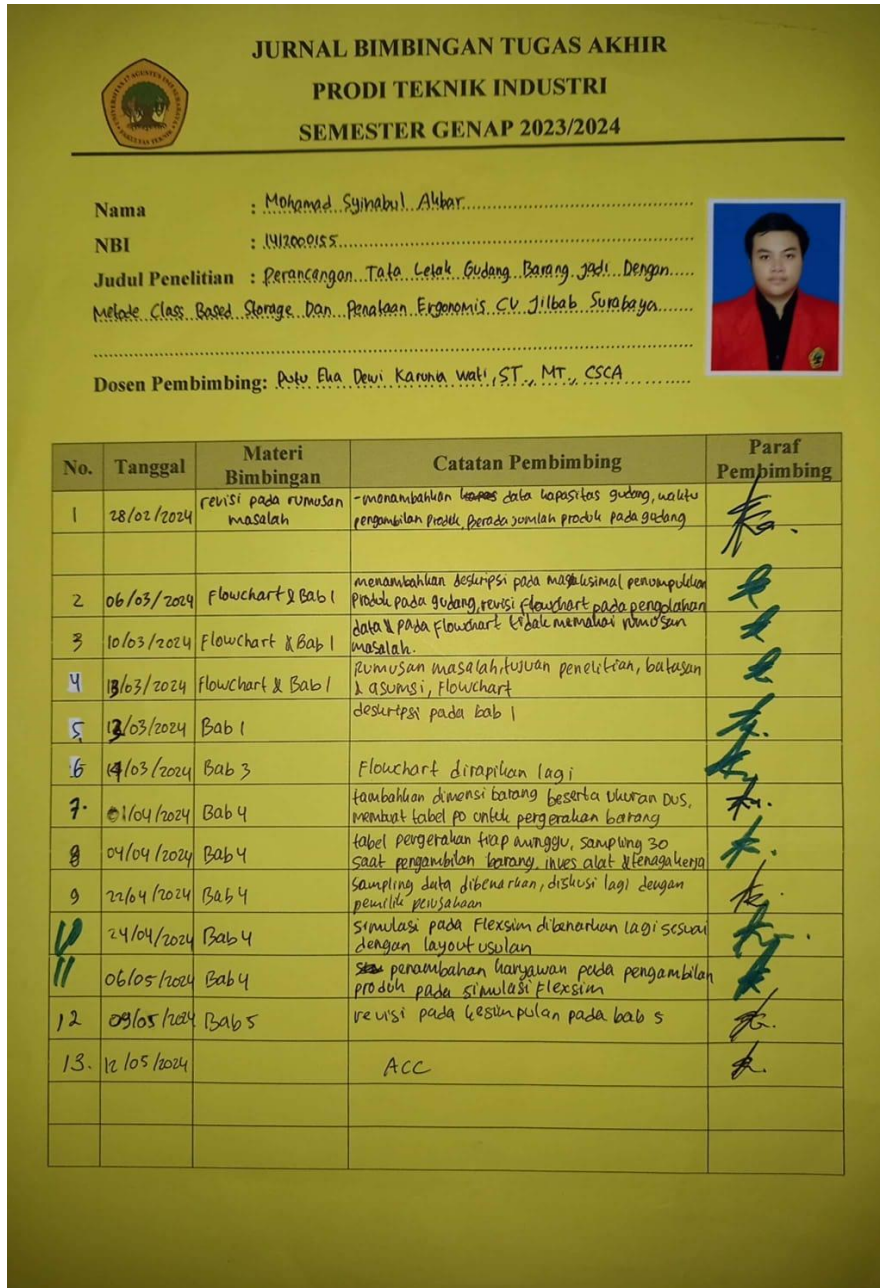 JURNAL BIMBINGAN TUGAS AKHIR
PRODI TEKNIK INDUSTRI
SEMESTER GENAP 2023/2024
Nama : Mohamad Syihabul Akbar
NBI : 1412000155
Judul Penelitian : Perancangan Tata Letak Gudang Barang Jadi Dengan
Metode Class Based Storage Dan Penataan Ergonomis CV Jilbab Surabaya
Dosen Pembimbing: Putu Eka Dewi Karunia Wati, ST., MT., CSCA
No. Tanggal Materi Bimbingan Catatan Pembimbing Paraf Pembimbing
1 28/02/2024 revisi pada rumusan masalah -menambahkan data kapasitas gudang, waktu
pengambilan Produk, Berada jumlah produk pada gudang
2 06/03/2024 Flowchart & Bab 1 menambahkan deskripsi pada penumpukkan
Produk pada gudang, revisi flowchart pada pengolahan
3 10/03/2024 Flowchart & Bab 1 data & pada Flowchart tidak memakai rumusan
masalah.
4 13/03/2024 Flowchart & Bab 1 Rumusan masalah, tujuan penelitian, batasan
& asumsi, Flowchart
5 13/03/2024 Bab 1 deskripsi pada bab 1
6 14/03/2024 Bab 3 Flowchart dirapikan lagi
7. 01/04/2024 Bab 4 tambahkan dimensi barang beserta ukuran Dus,
membuat tabel po untuk pergerakan barang
8 04/04/2024 Bab 4 tabel pergerakan tiap minggu, sampling 30
saat pengambilan barang, inves alat & tenaga kerja
9 22/04/2024 Bab 4 Sampling data dibenarkan, diskusi lagi dengan
pemilik perusahaan
10 24/04/2024 Bab 4 simulasi pada Flexsim dibenarkan lagi sesuai
dengan layout usulan
11 06/05/2024 Bab 4 penambahan karyawan pada pengambilan
produk pada simulasi Flexsim
12 09/05/2024 Bab 5 revisi pada kesimpulan pada bab 5
13. 12/05/2024 ACC